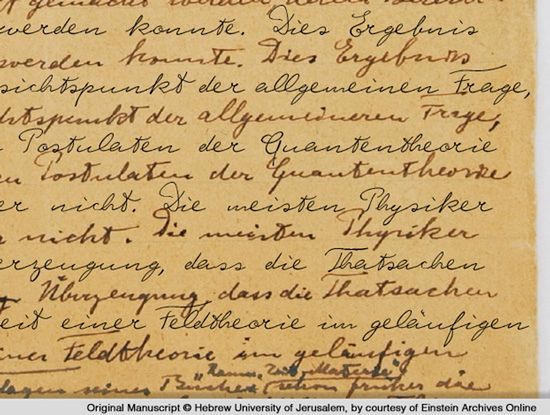 gemacht werden,
werden konnte. Dies Ergebnis
werden konnte. Dies Ergebnis
sichtspunkt der allgemeinen Frage,
htspunkt der allgemeineren Frage,
Postulaten der Quantentheorie
en Postulaten der Quantentheorie
er nicht. Die meisten Physiker
nicht. Die meisten Physiker
erzeugung, dass die Thatsachen
Überzeugung, dass die Thatsachen
eit einer Feldtheorie im geläufigen
einer Feldtheorie im geläufigen
"Raum, Zeit, Materie"
seines Buches schon früher die
Original Manuscript © Hebrew University of Jerusalem, by courtesy of Einstein Archives Online